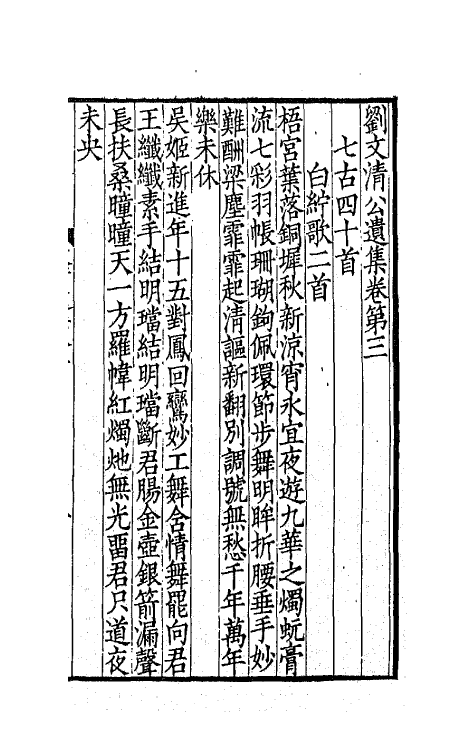 劉文清公遺集卷第三
七古四十首
白紵歌二首
梧宮葉落銅墀秋新涼宵永宜夜遊九華之燭蚖膏
流七彩羽帳珊瑚鉤佩環節步舞明眸折腰垂手妙
難酬梁塵霏霏起清謳新翻別調號無愁千年萬年
樂未休
吳姬新進年十五對鳳回鸞妙工舞含情舞罷向君
王纖纖素手結明璫結明璫斷君腸金壺銀箭漏聲
長扶桑曈曈天一方羅幃紅燭灺無光畱君只道夜
未央